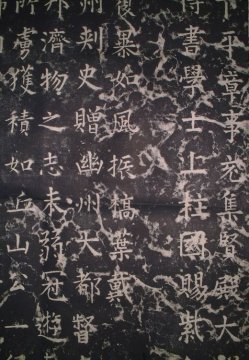 下平章事充集賢殿大
書學士上柱國賜紫
果如風振槁葉戴
州刺史贈幽州大都督
濟物之志未弱冠遊
所虜獲積如丘山